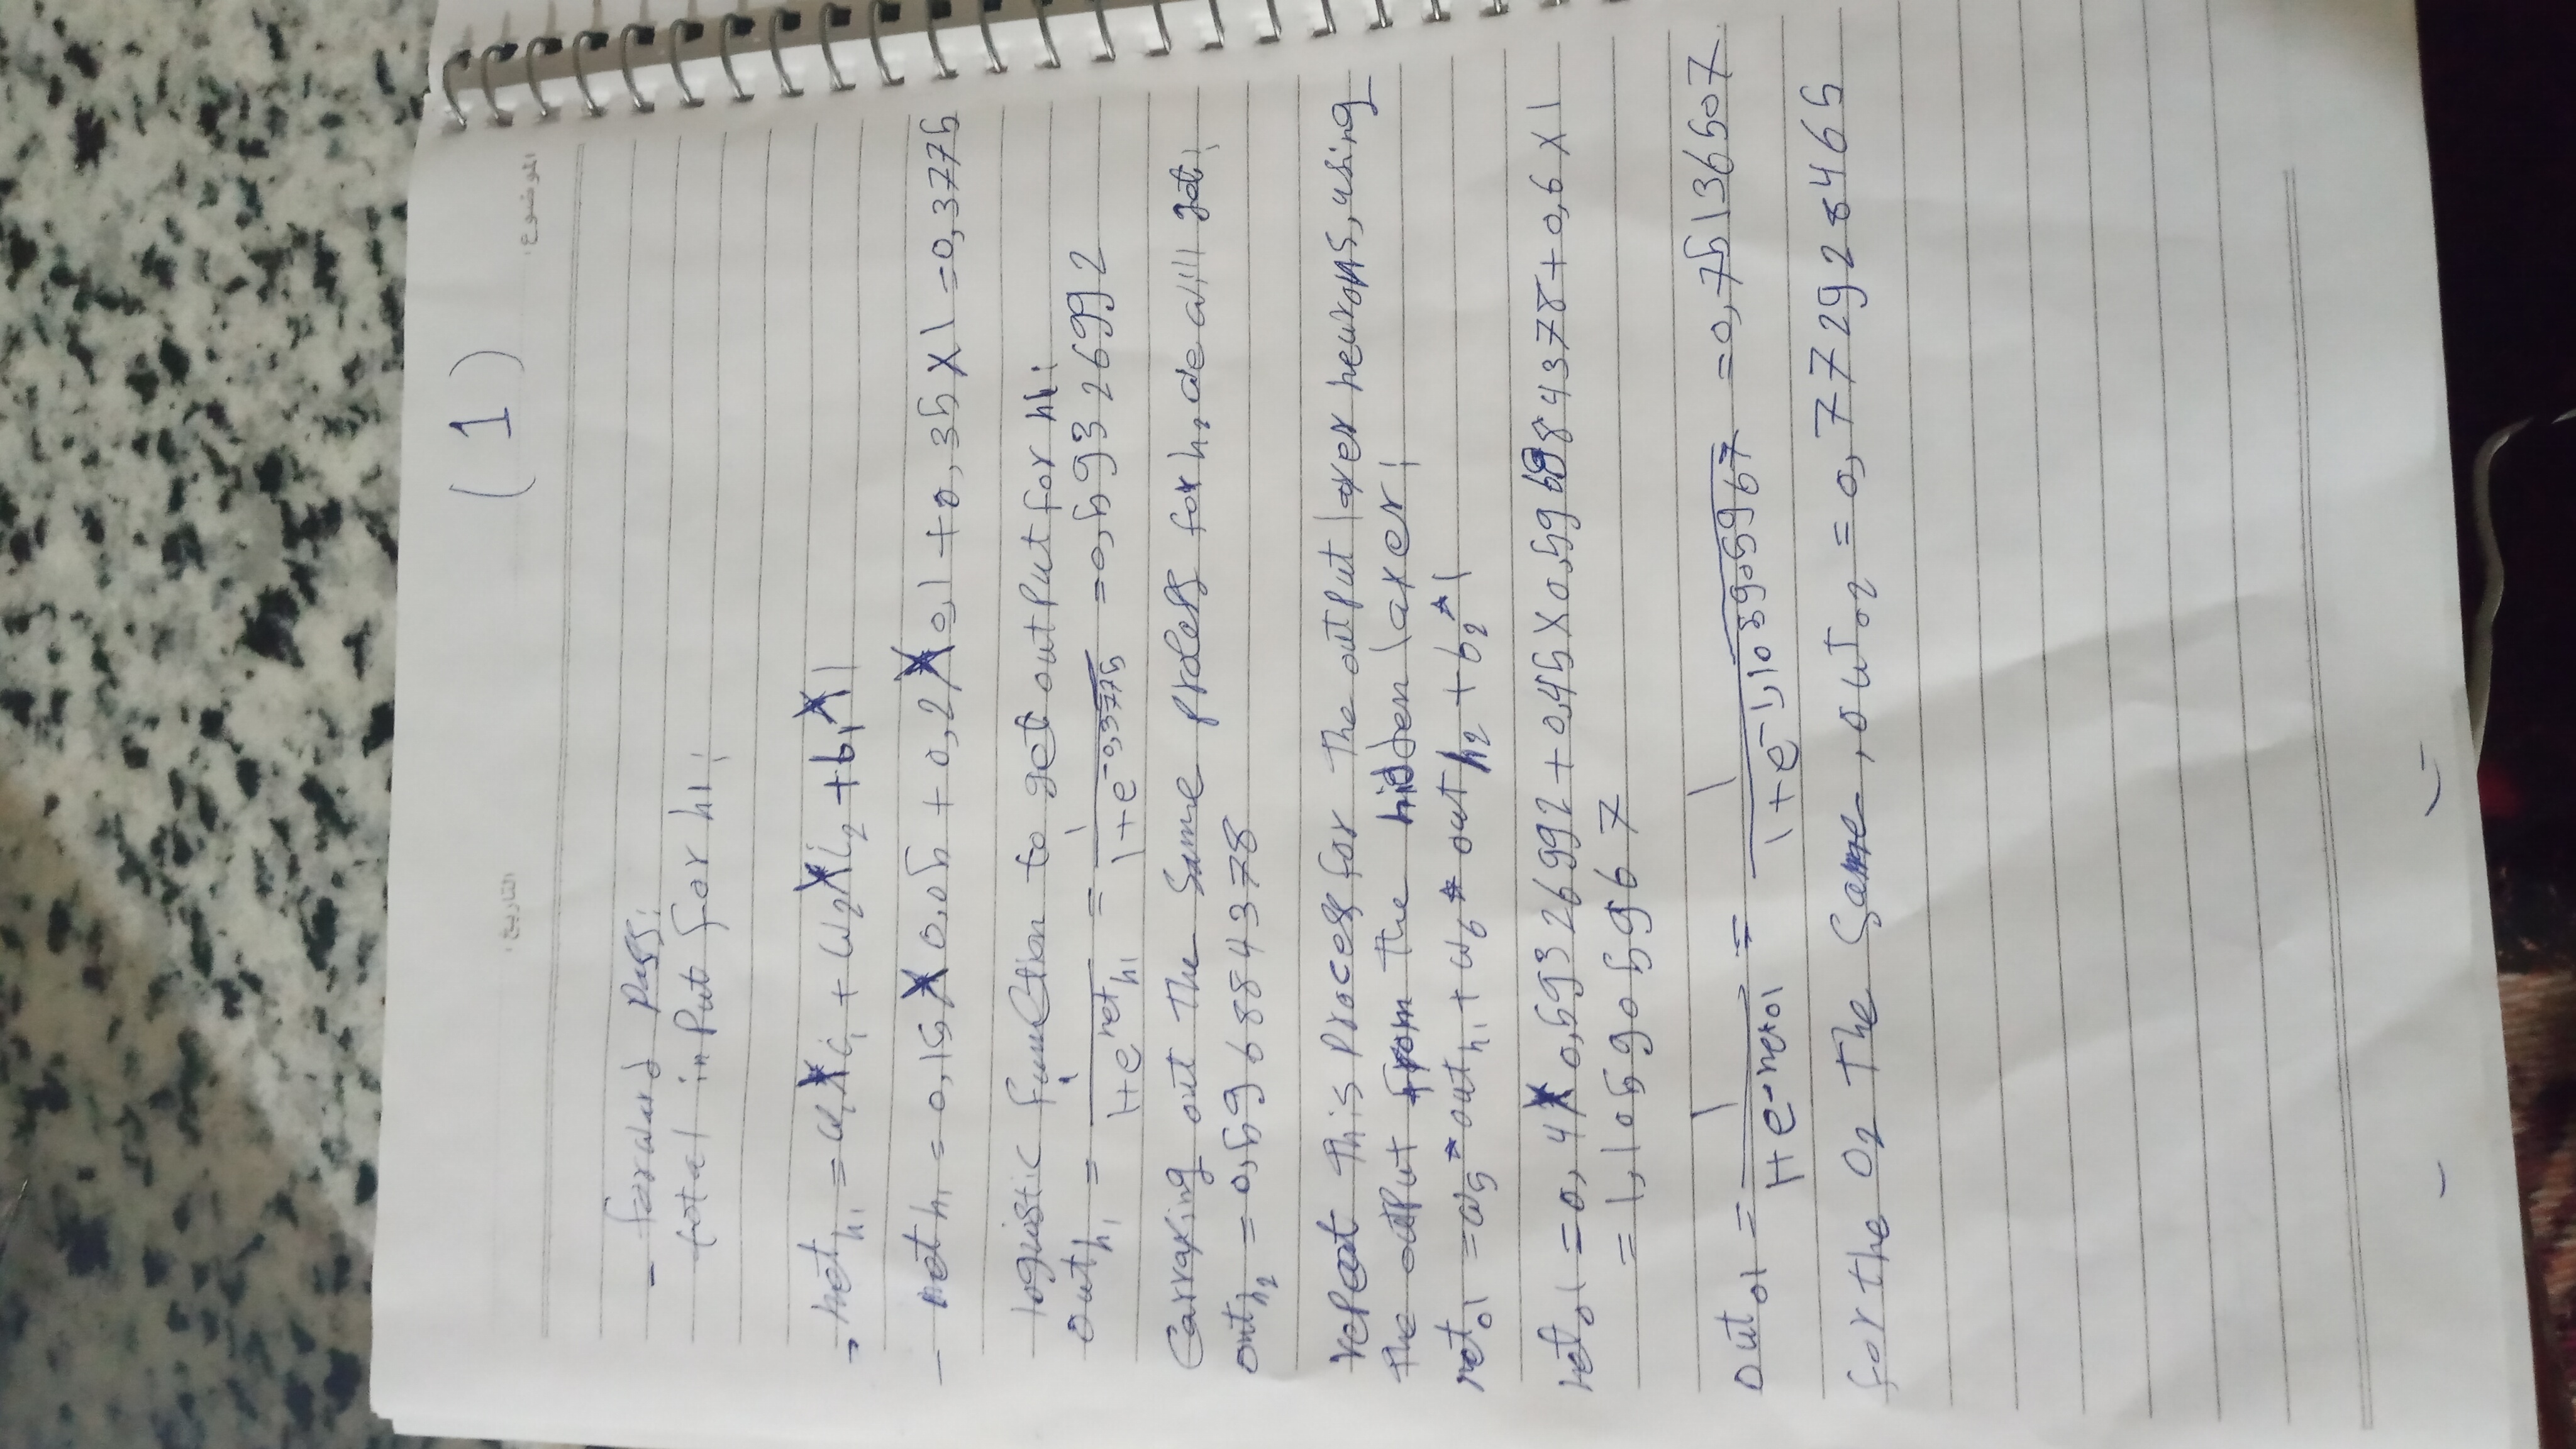 (1)
الموضوع: التاريخ:
- forward pass:
total input for h1:
- net h1 = w1*i1 + w2*i2 + b1*1
- net h1 = 0,15*0,05 + 0,2*0,1 + 0,35 x 1 = 0,3775
logistic function to get output for h1:
out h1 = 1/1+e^net h1 = 1/1+e^-0,3775 = 0,59326992
Carraxing out The Same process for h2 we will get:
out h2 = 0,596884378
repeat This process for The output laxer neurons, using
The output from The hidden laxer:
net o1 = w5 * out h1 + w6 * out h2 + b2 * 1
net o1 = 0,4*0,59326992 + 0,45 x 0,596884378 + 0,6 x 1
= 1,105905967
out o1 = 1/1+e^-net o1 = 1/1+e^-1,105905967 = 0,75136507
for the O2 The Same, out o2 = 0,772928465